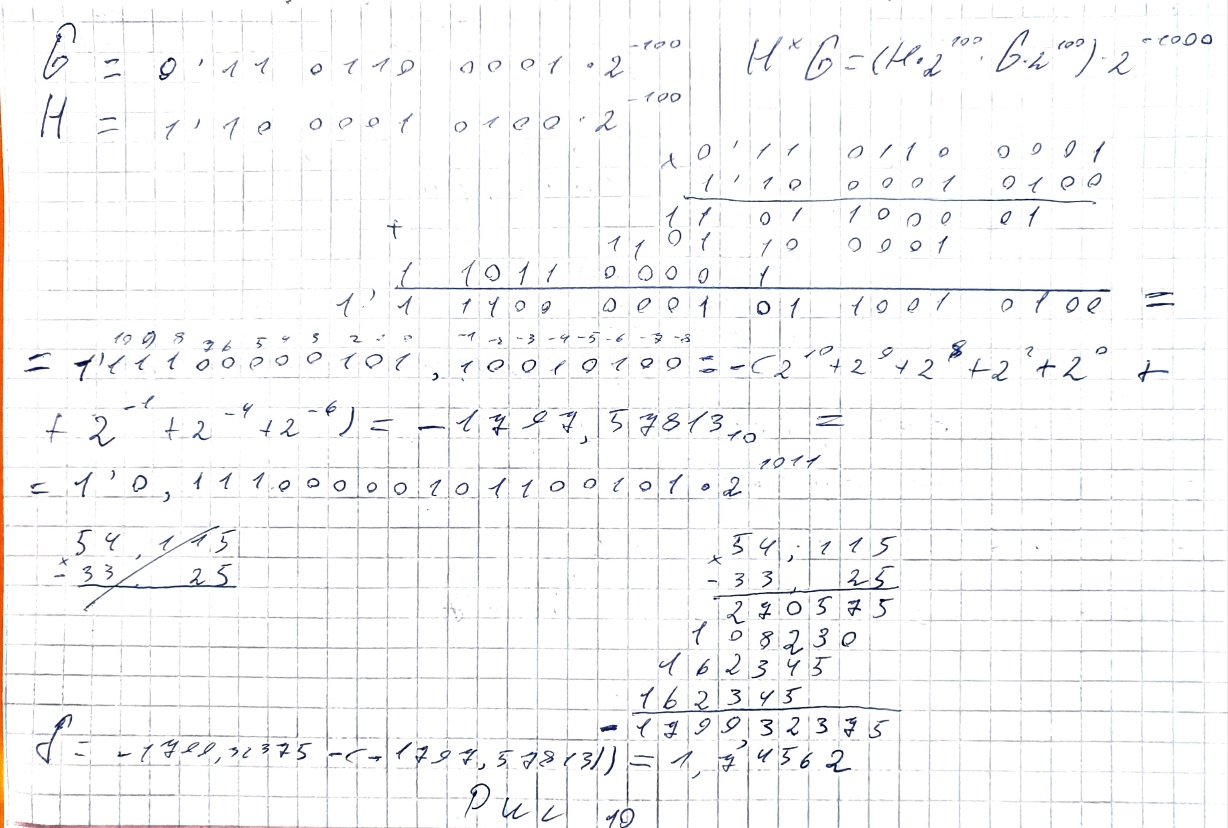 G = 0'11 0110 0001 · 2^-100
H×G = (H·2^100 · G·2^100) · 2^-1000
H = 1'10 0001 0100 · 2^-100
× 0'11 0110 0001
1'10 0001 0100
11 01 1000 01
+ 1101 10 0001
1 1011 0000 1
1' 1 1100 0001 01 1001 0100 =
10 9 8 7 6 5 4 3 2 1 0 -1 -2 -3 -4 -5 -6 -7 -8
= 1'11100000101,10010100 = -(2^10 + 2^9 + 2^8 + 2^2 + 2^0 +
+ 2^-1 + 2^-4 + 2^-6) = -1797,57813_10 =
= 1'0,11100000101100101 · 2^1011
× 54,115
-33 25
× 54,115
-33, 25
270575
108230
162345
162345
-1799,32375
= -1799,32375 -(-1797,57813)) = 1,74562
Рис 10